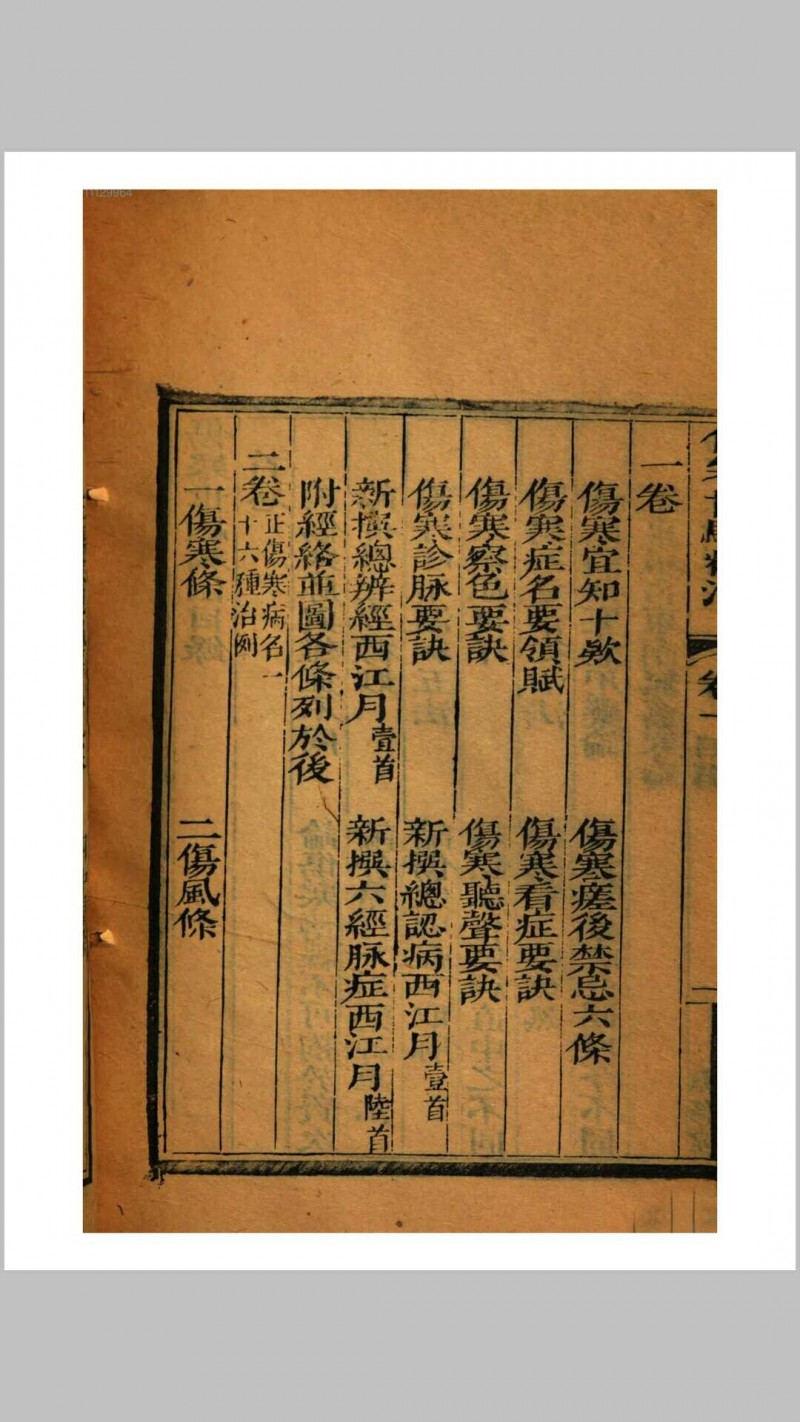 11129964
一卷
傷寒宜知十欵 傷寒瘥後禁忌六條
傷寒症名要領賦 傷寒看症要訣
傷寒察色要訣 傷寒聽聲要訣
傷寒診脉要訣 新撰總認病西江月壹首
新撰總辨經西江月壹首 新撰六經脉症西江月陸首
附經絡並圖各條列於後
二卷正傷寒病名一十六種治例
一傷寒條 二傷風條